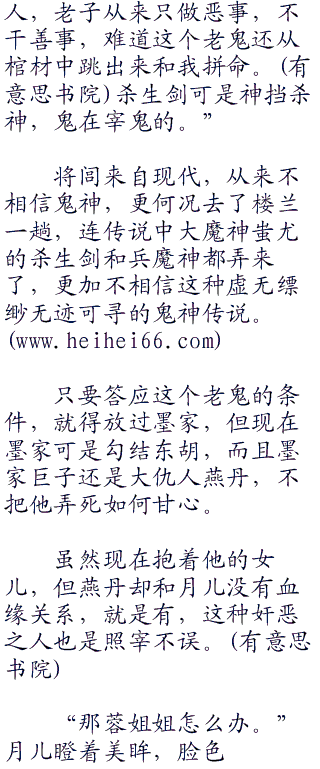 人，老子从来只做恶事，不
干善事，难道这个老鬼还从
棺材中跳出来和我拼命。(有
意思书院)杀生剑可是神挡杀
神，鬼在宰鬼的。”
将闾来自现代，从来不
相信鬼神，更何况去了楼兰
一趟，连传说中大魔神蚩尤
的杀生剑和兵魔神都弄来
了，更加不相信这种虚无缥
缈无迹可寻的鬼神传说。
(www.heihei66.com)
只要答应这个老鬼的条
件，就得放过墨家，但现在
墨家可是勾结东胡，而且墨
家巨子还是大仇人燕丹，不
把他弄死如何甘心。
虽然现在抱着他的女
儿，但燕丹却和月儿没有血
缘关系，就是有，这种奸恶
之人也是照宰不误。(有意思
书院)
“那蓉姐姐怎么办。”
月儿瞪着美眸，脸色